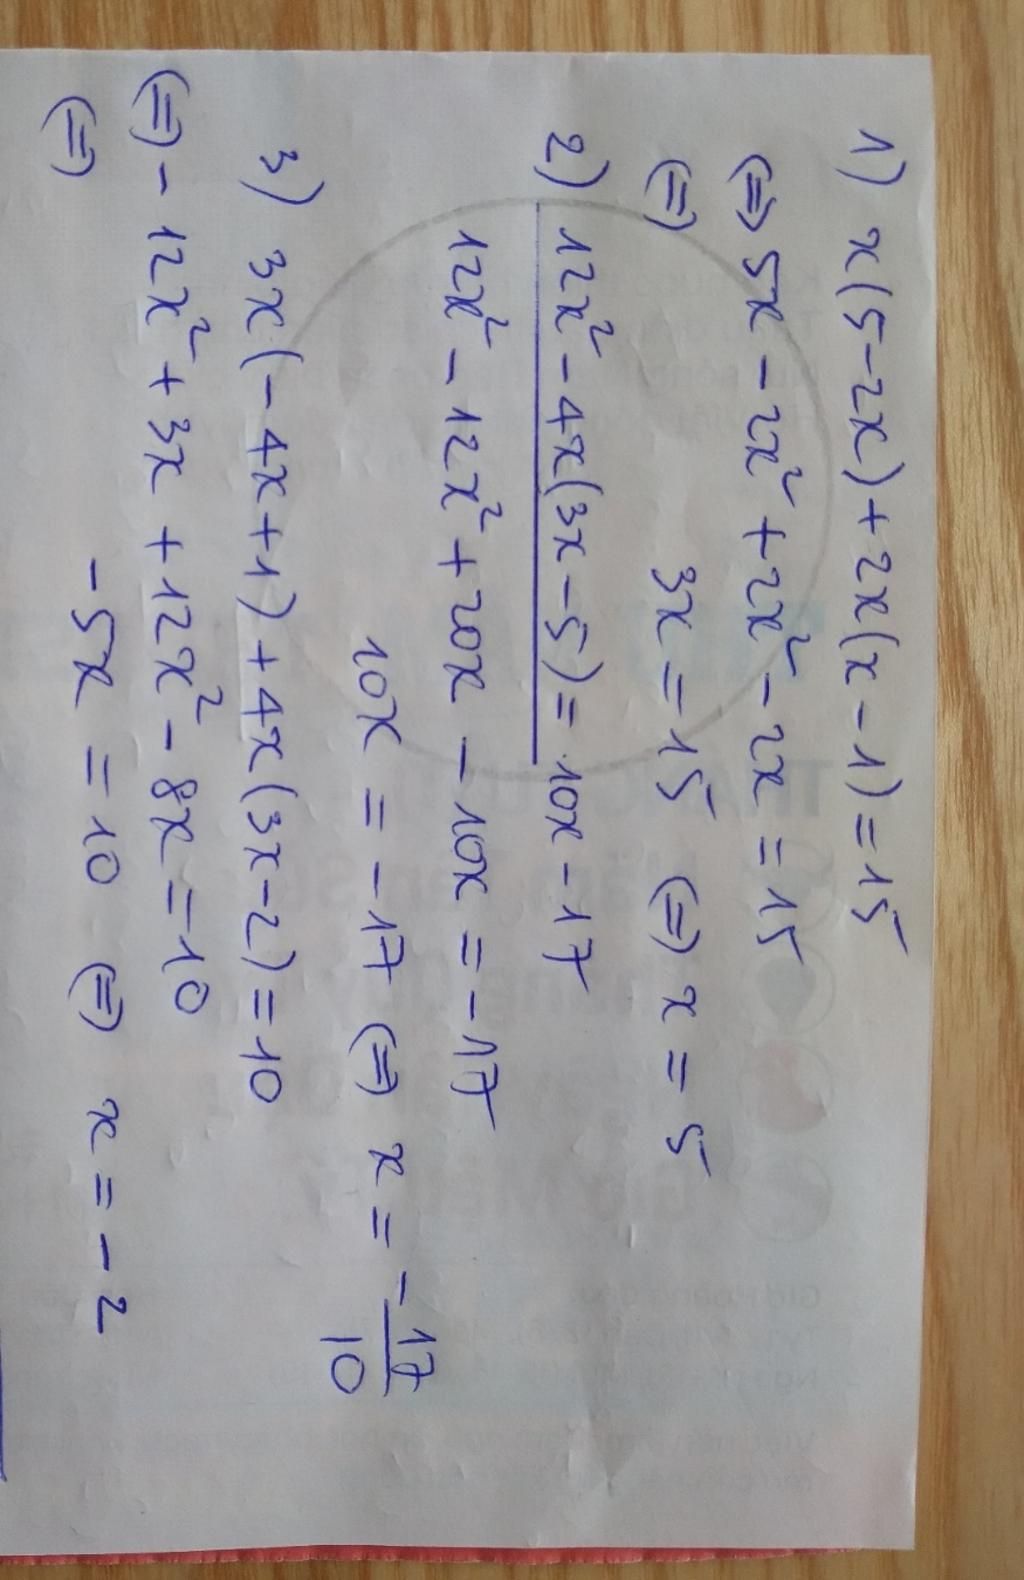 1) x(5-2x)+2x(x-1)=15
(=) 5x - 2x² + 2x² - 2x = 15
(=) 3x = 15 (=) x = 5
2) 12x² - 4x(3x-5) = 10x - 17
12x² - 12x² + 20x - 10x = -17
10x = -17 (=) x = -17/10
3) 3x(-4x+1) + 4x(3x-2) = 10
(=) -12x² + 3x + 12x² - 8x = 10
(=) -5x = 10 (=) x = -2